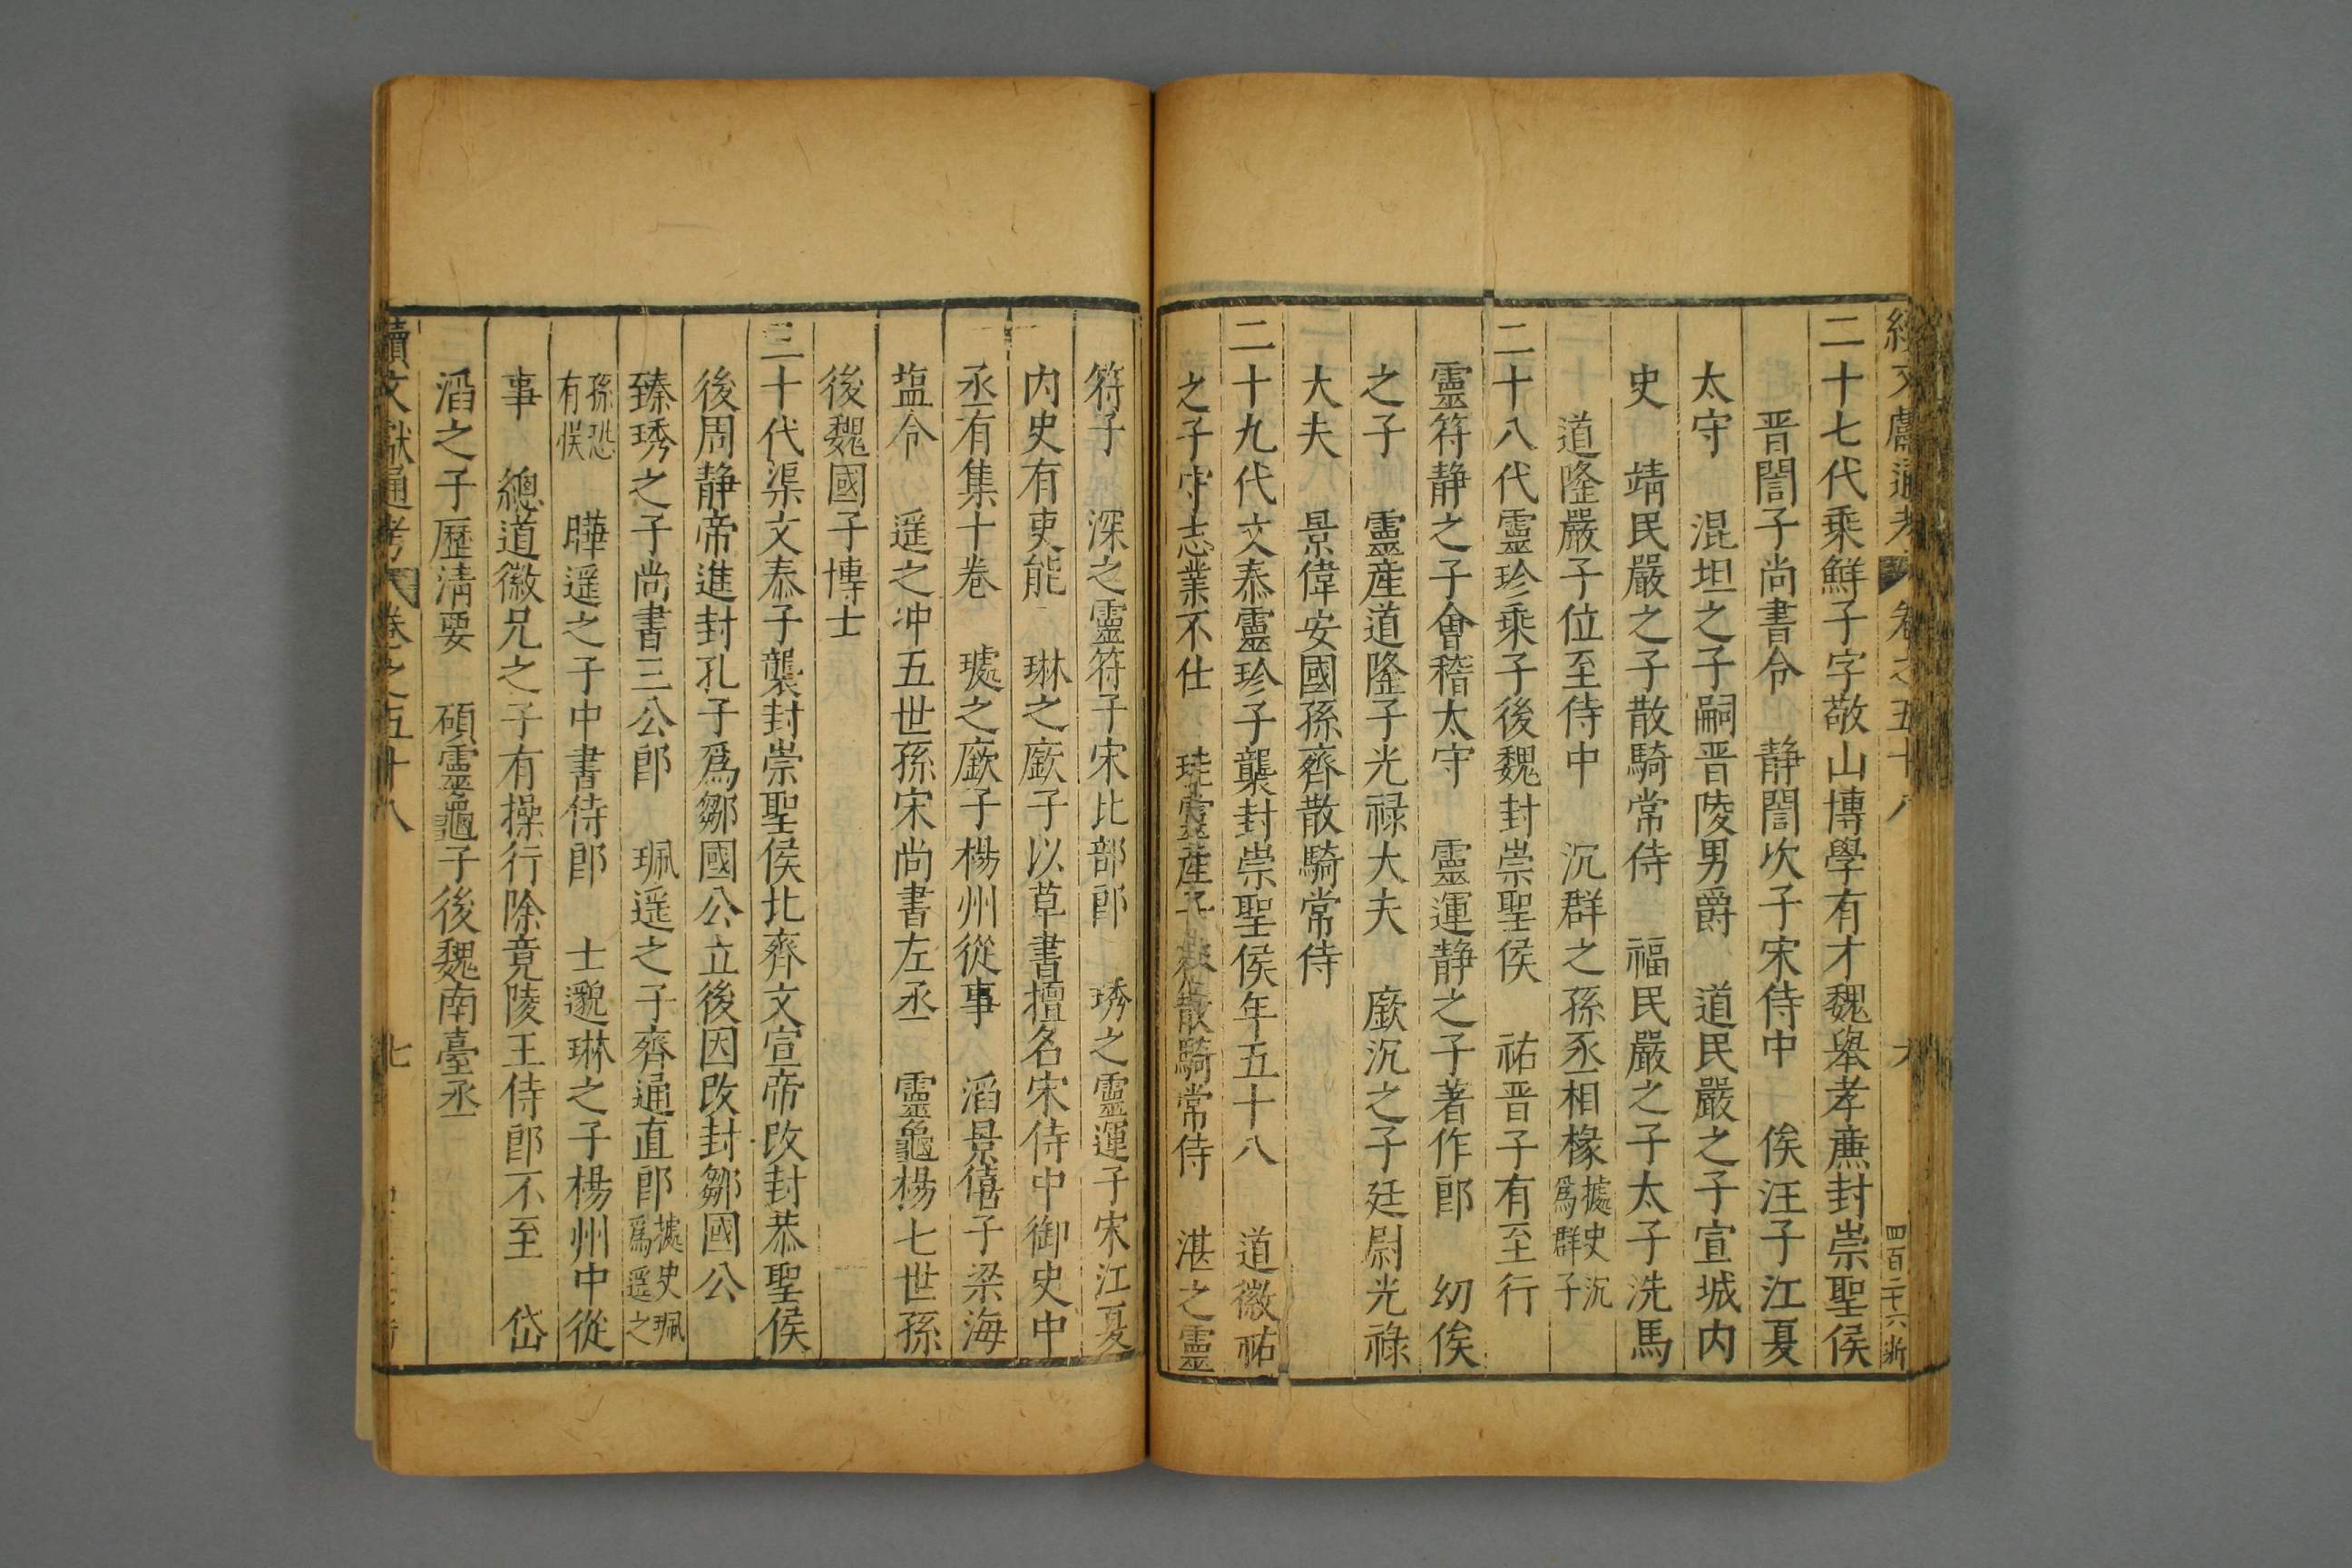 續文獻通考 卷之五十八 六 四百二十六 浙
二十七代乘鮮子字敬山博學有才魏舉孝廉封崇聖侯
晋誾子尚書令 靜誾次子宋侍中 俟汪子江夏
太守 混坦之子嗣晋陵男爵 道民嚴之子宣城内
史 靖民嚴之子散騎常侍 福民嚴之子太子洗馬
道隆嚴子位至侍中 沉群之孫丞相椽據史沉爲群子
二十八代靈珍乘子後魏封崇聖侯 祐晋子有至行
靈符靜之子會稽太守 靈運靜之子著作郎 幼俟
之子 靈産道隆子光禄大夫 廞沉之子廷尉光禄
大夫 景偉安國孫齊散騎常侍
二十九代文泰靈珍子襲封崇聖侯年五十八 道徽祐
之子守志業不仕 珪靈産子 散騎常侍 湛之靈
符子 深之靈符子宋比部郎 琇之靈運子宋江夏
内史有吏能 琳之廞子以草書擅名宋侍中御史中
丞有集十卷 璩之廞子楊州從事 滔景僖子梁海
塩令 遥之冲五世孫宋尚書左丞 靈龜楊七世孫
後魏國子博士
三十代渠文泰子襲封崇聖侯北齊文宣帝改封恭聖侯
後周靜帝進封孔子爲鄒國公立後因改封鄒國公
臻琇之子尚書三公郎 珮遥之子齊通直郎據史珮爲遥之
孫恐有悮 曄遥之子中書侍郎 士邈琳之子楊州中從
事 總道徽兄之子有操行除竟陵王侍郎不至 岱
滔之子歷清要 碩靈龜子後魏南臺丞
續文獻通考 卷之五十八 七